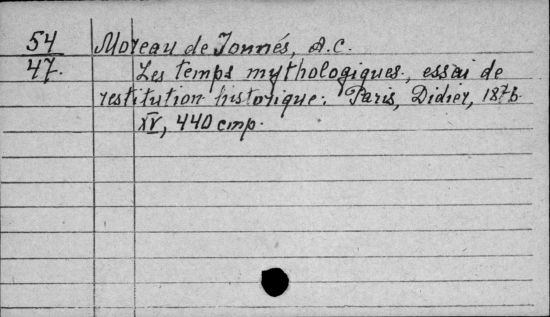 54
47.
Moreau de Jonnés, A.C.
Les temps mythologiques, essai de
restitution historique. Paris, Didier, 1876.
XV, 440 cmp.